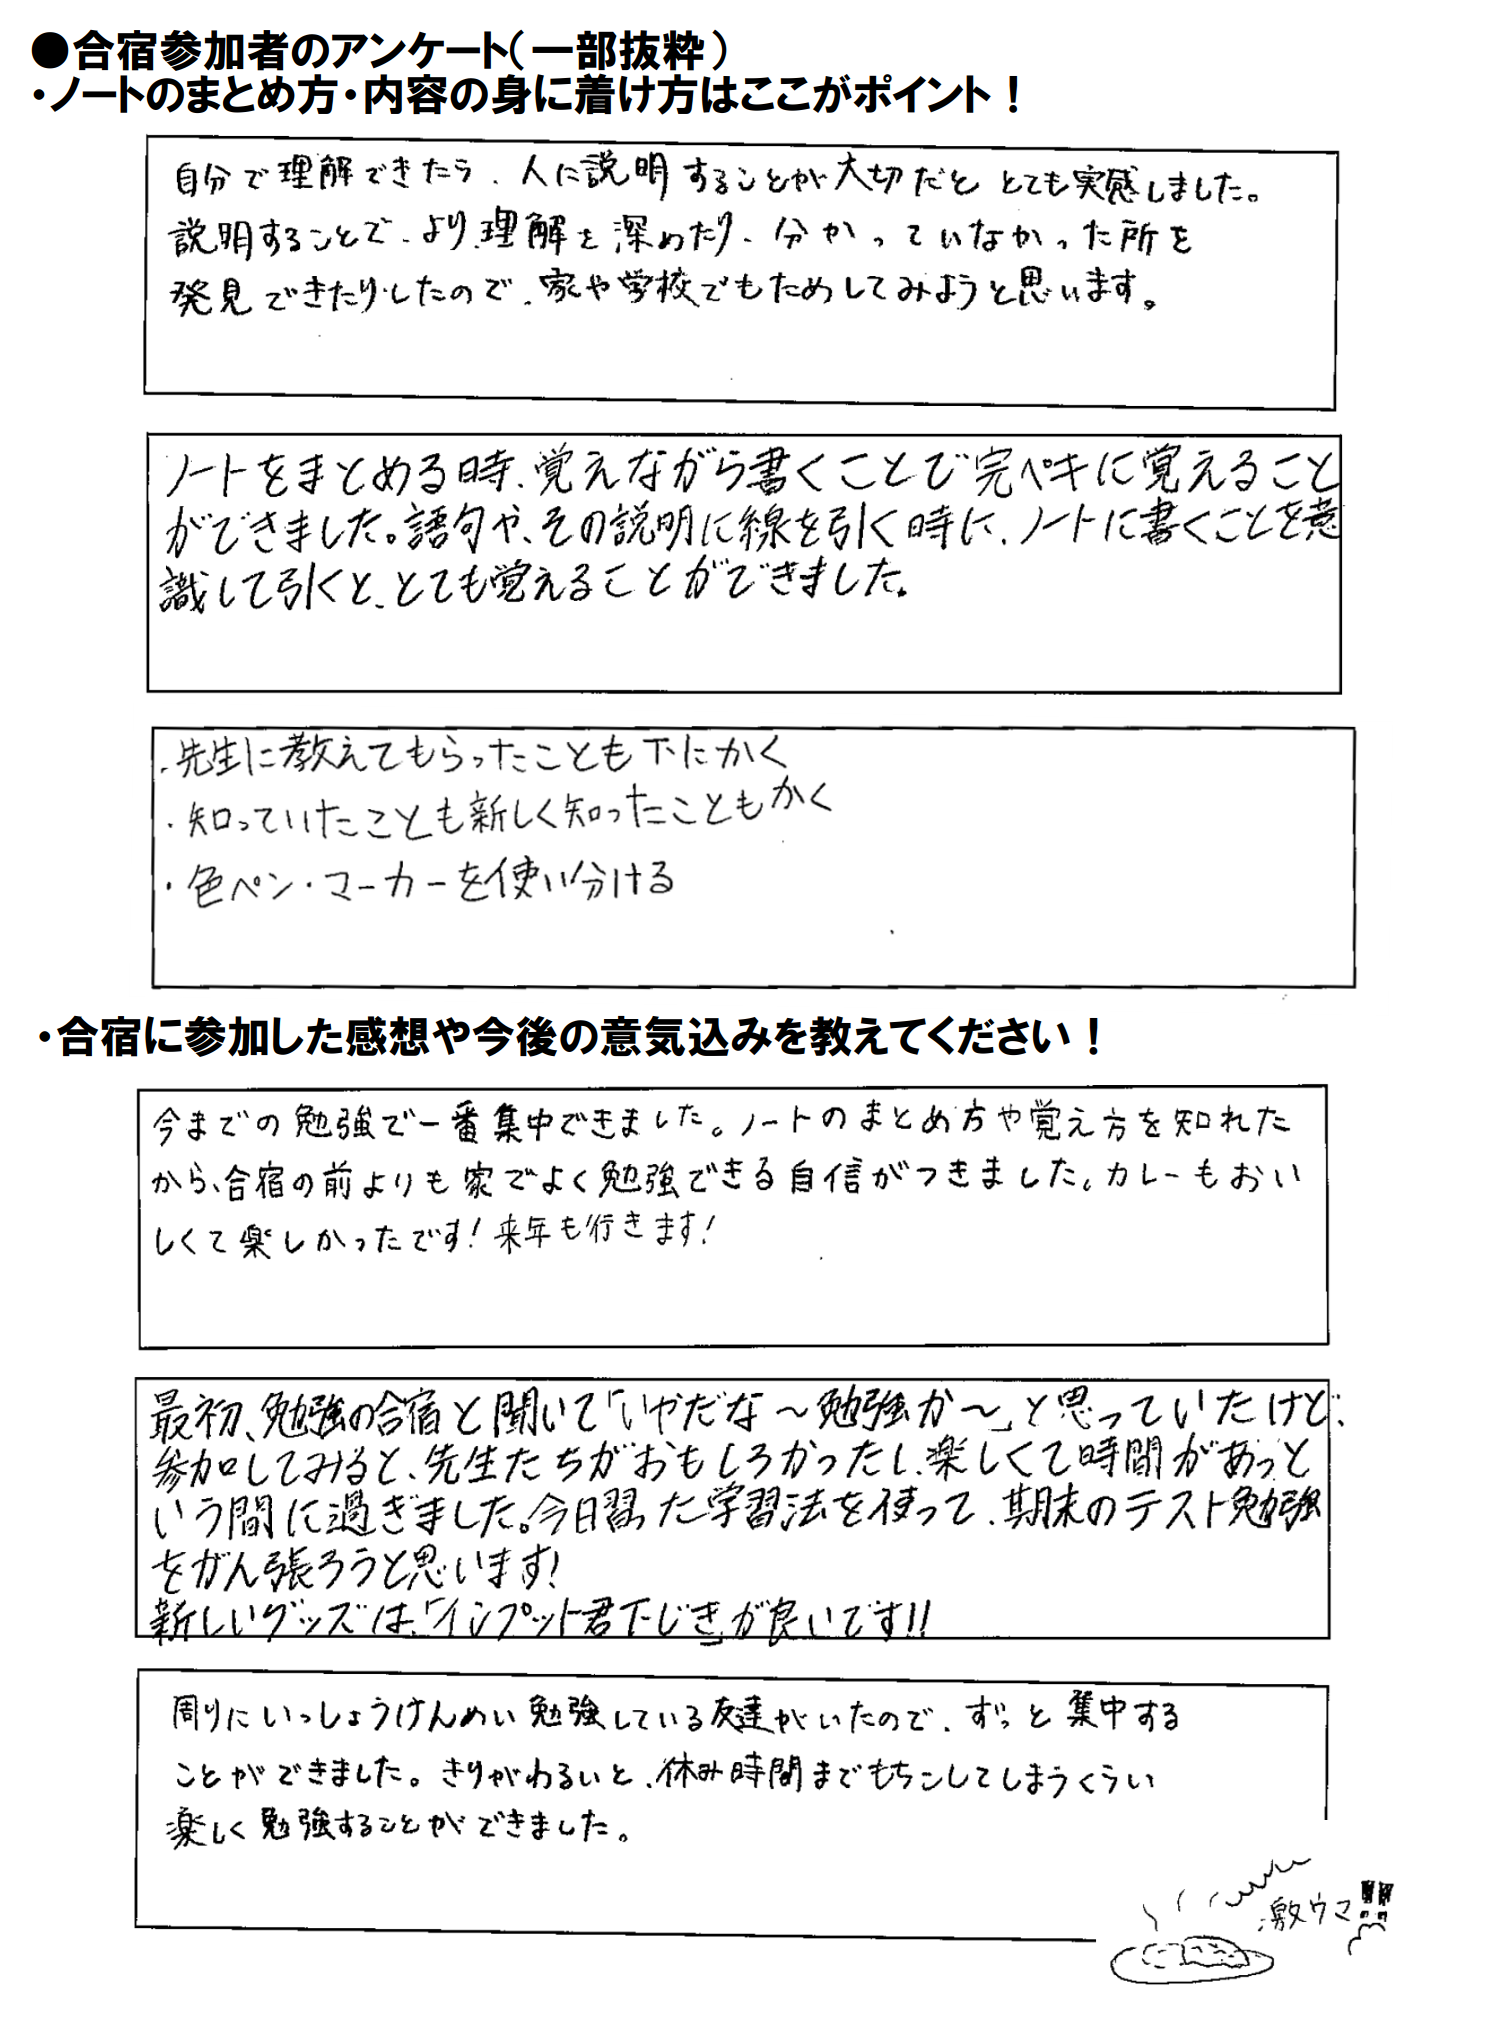 ●合宿参加者のアンケート（一部抜粋）
・ノートのまとめ方・内容の身に着け方はここがポイント！
自分で理解できたら、人に説明することが大切だと とても実感しました。
説明することで、より理解を深めたり、分かっていなかった所を
発見できたりしたので、家や学校でもためしてみようと思います。
ノートをまとめる時、覚えながら書くことで完ペキに覚えること
ができました。語句や、その説明に線を引く時に、ノートに書くことを意
識して引くと、とても覚えることができました。
・先生に教えてもらったことも下にかく
・知っていたことも新しく知ったこともかく
・色ペン・マーカーを使い分ける
・合宿に参加した感想や今後の意気込みを教えてください！
今までの勉強で一番集中できました。ノートのまとめ方や覚え方を知れた
から、合宿の前よりも家でよく勉強できる自信がつきました。カレーもおい
しくて楽しかったです！来年も行きます！
最初、勉強の合宿と聞いて「いやだな～勉強か～」と思っていたけど、
参加してみると、先生たちがおもしろかったし、楽しくて時間があっと
いう間に過ぎました。今日習った学習法を使って、期末のテスト勉強
をがん張ろうと思います！
新しいグッズは、「インプット君下じき」が良いです!!
周りにいっしょうけんめい勉強している友達がいたので、ずっと集中する
ことができました。きりがわるいと、休み時間までもちこしてしまうくらい
楽しく勉強することができました。
激ウマ!!